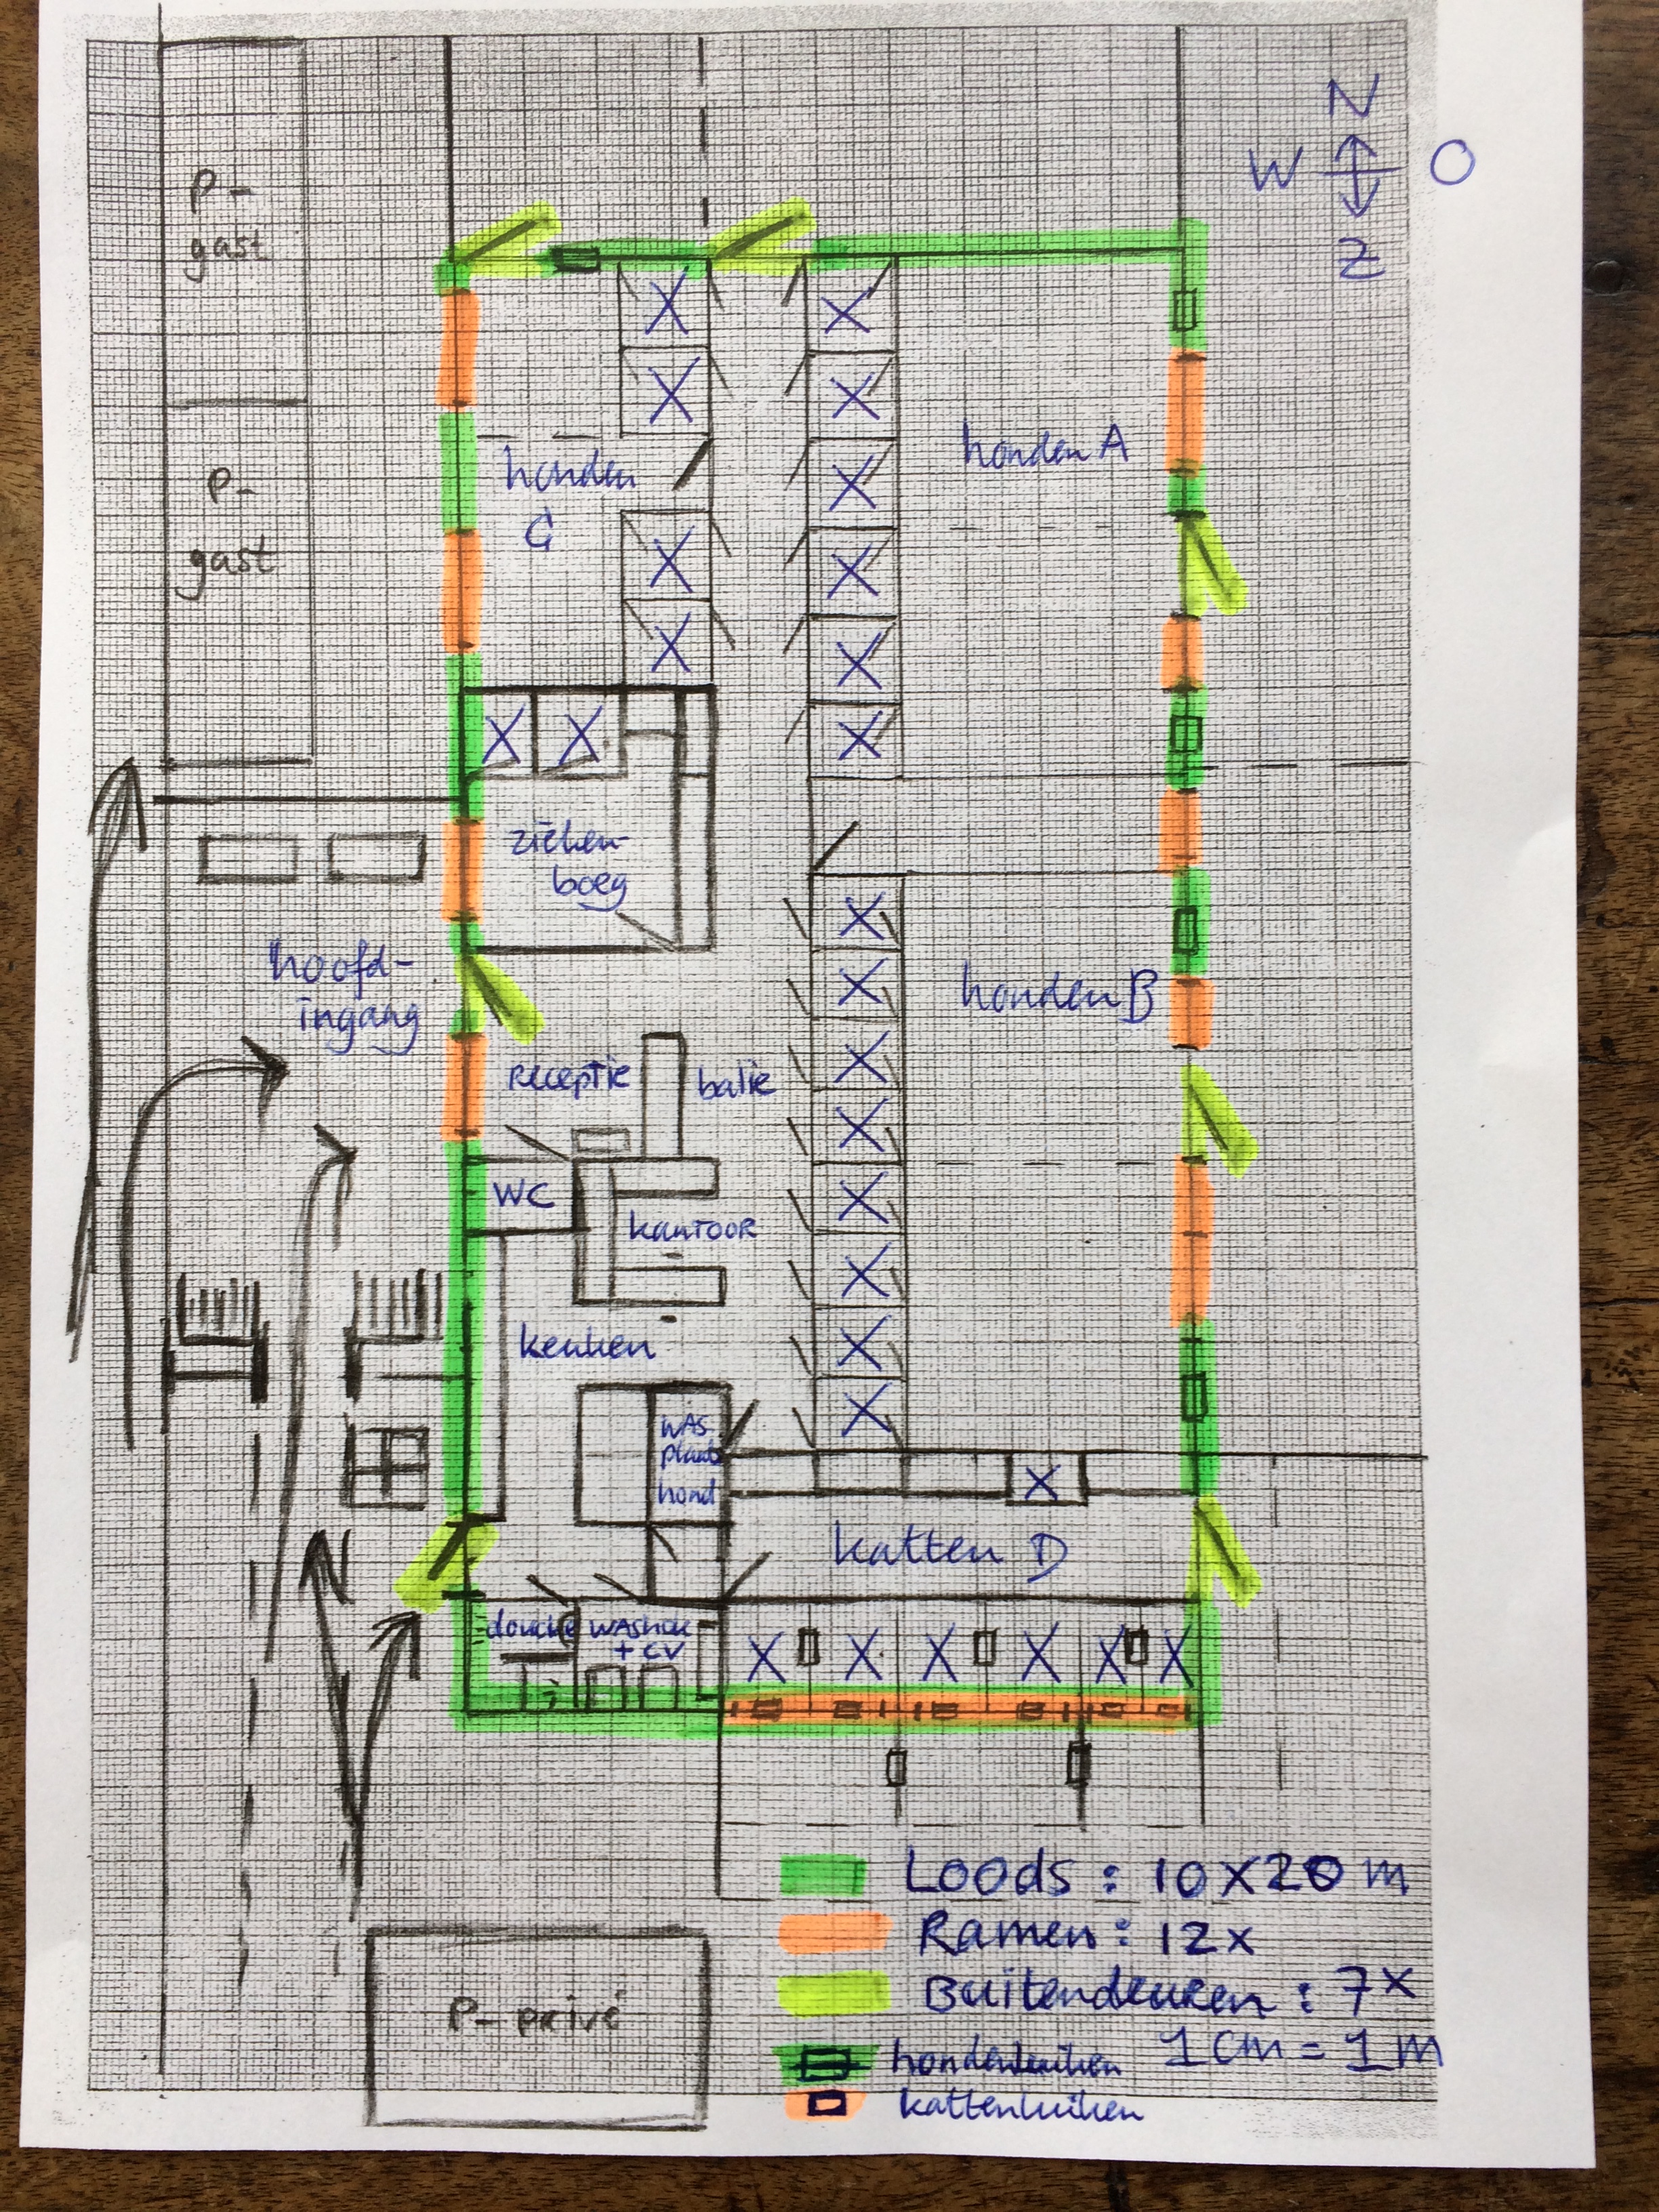 N
W O
Z
P-
gast
P-
gast
honden A
honden
C
zieken-
boeg
hoofd-
ingang
honden B
receptie balie
WC
kantoor
keuken
WAS
plaats
hond
katten D
douche WASHOK
+ CV
N
Loods : 10 x 20 m
Ramen : 12 x
Buitendeuren : 7 x
P-privé
hondenluiken 1 cm = 1 m
kattenluiken